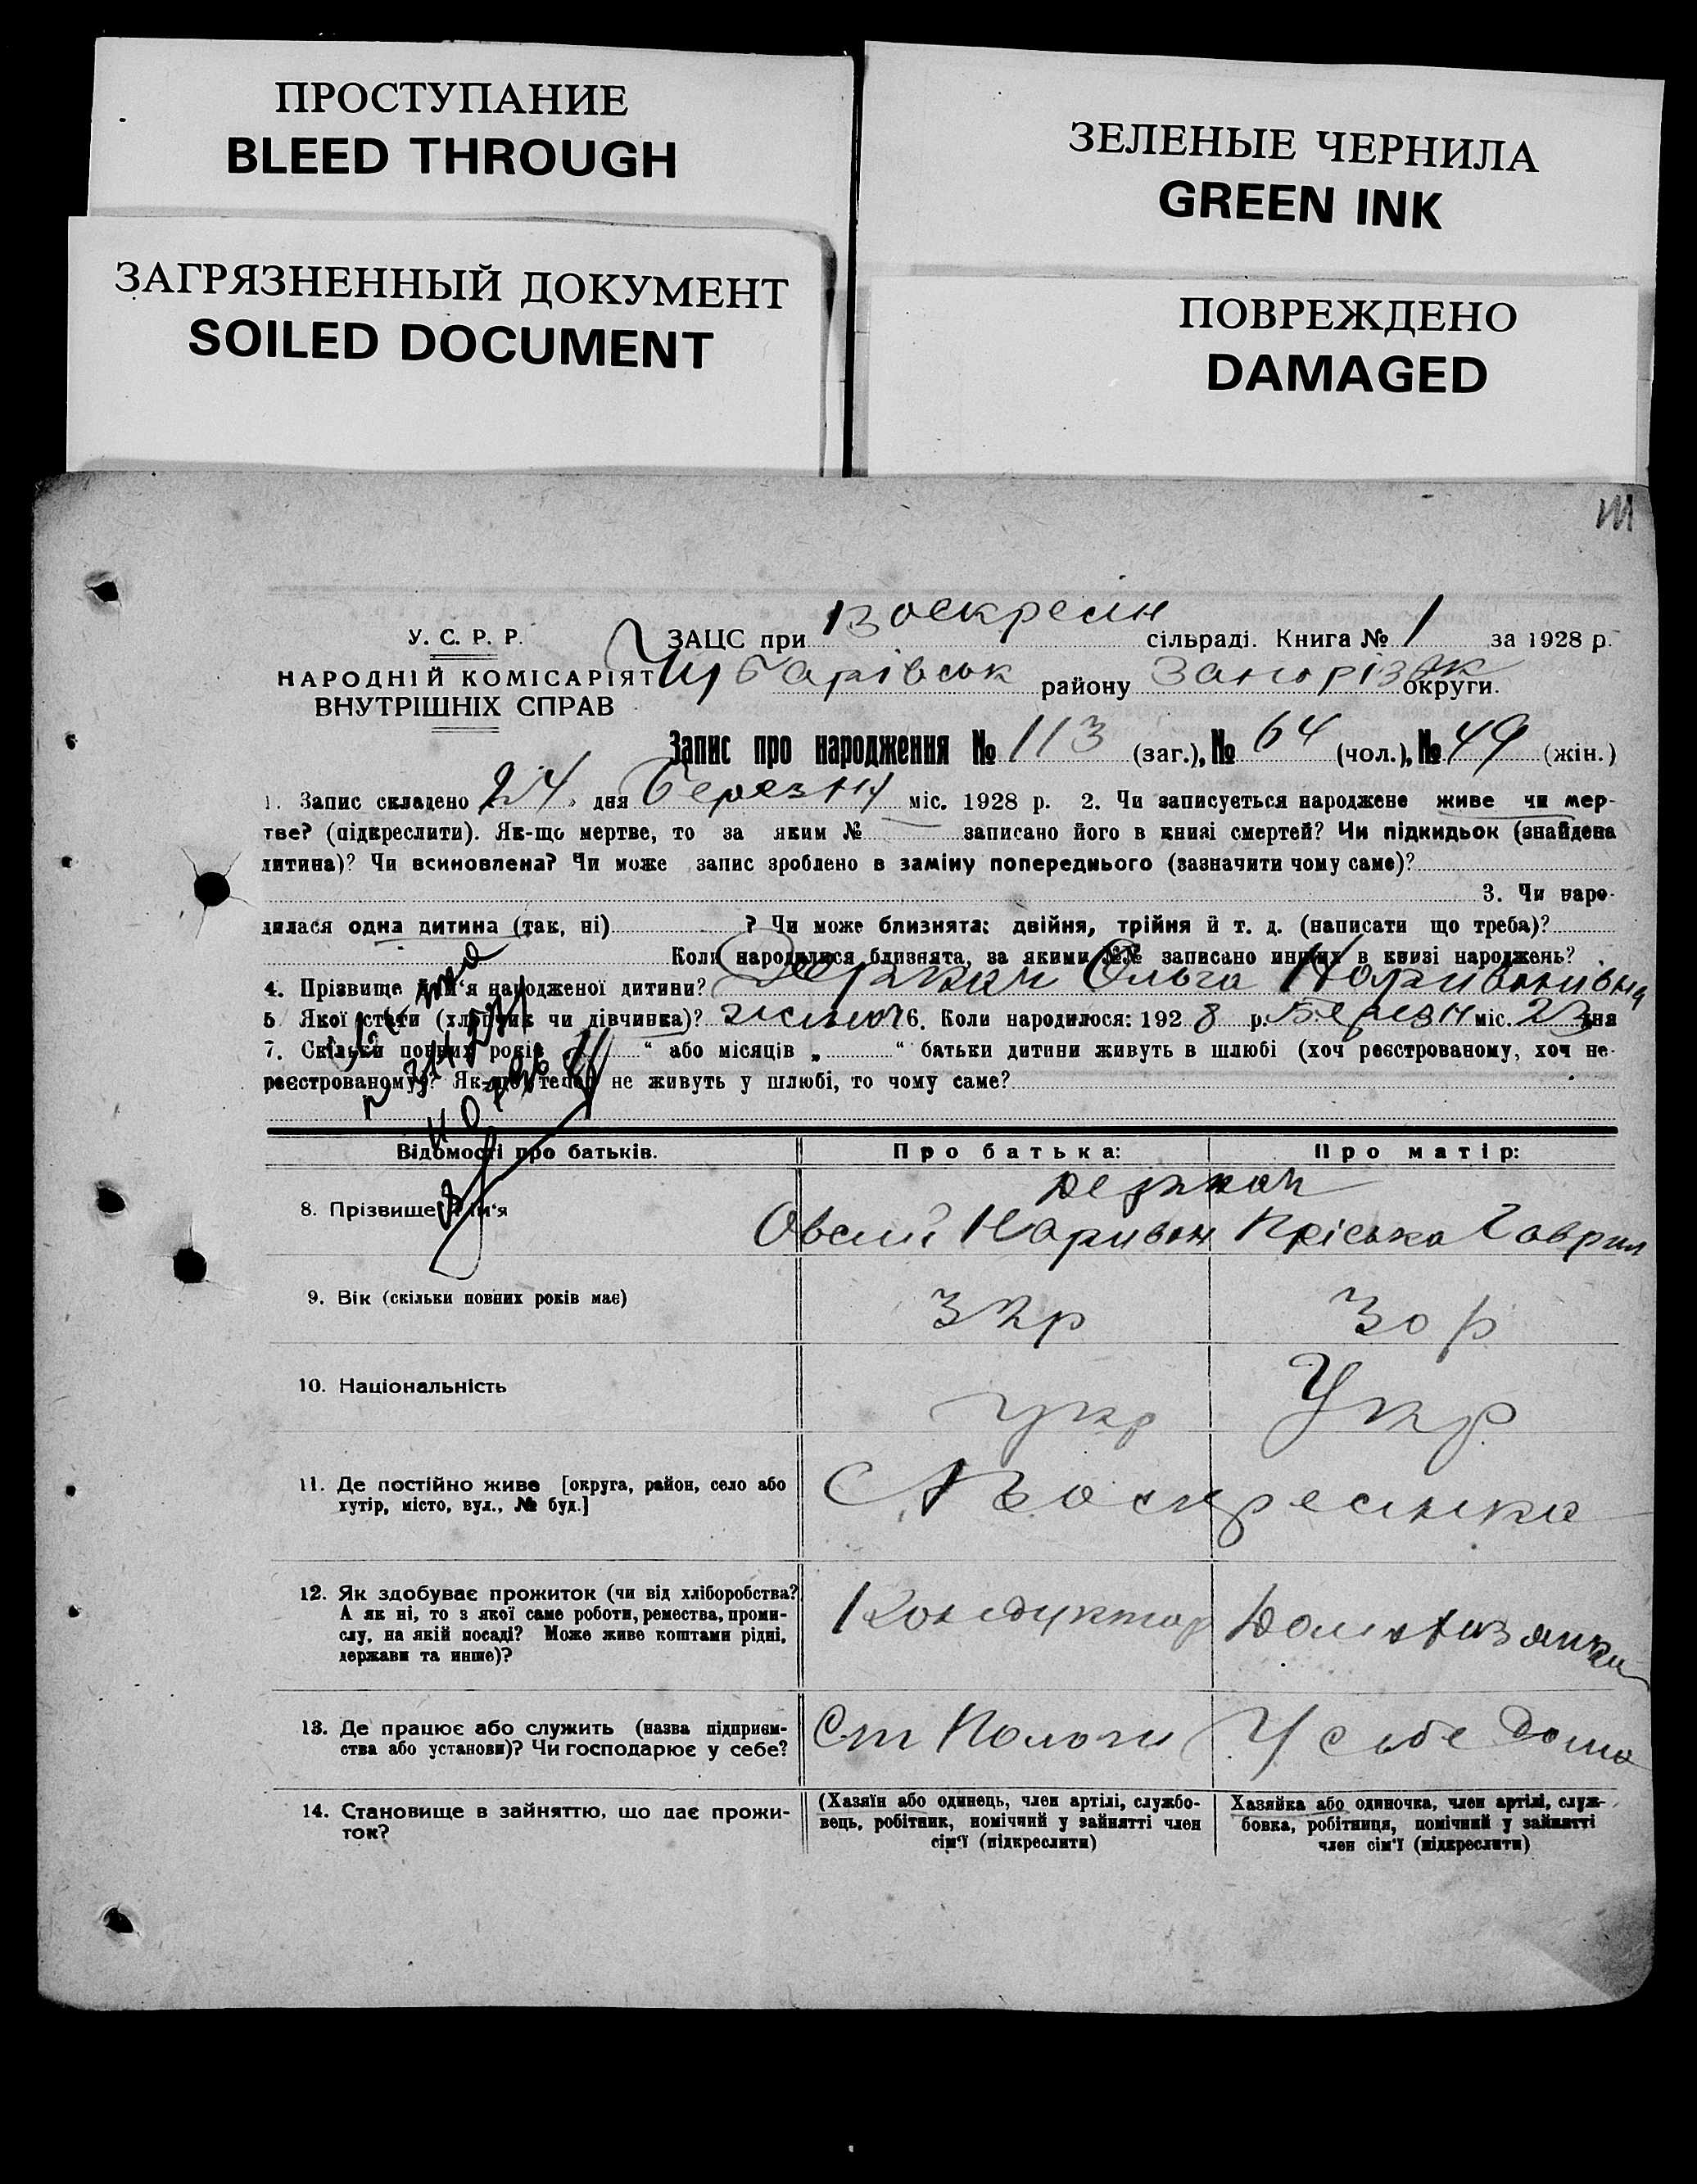 ПРОСТУПАНИЕ
BLEED THROUGH
ЗЕЛЕНЫЕ ЧЕРНИЛА
GREEN INK
ЗАГРЯЗНЕННЫЙ ДОКУМЕНТ
SOILED DOCUMENT
ПОВРЕЖДЕНО
DAMAGED
У. С. Р. Р.
НАРОДНІЙ КОМІСАРІЯТ
ВНУТРІШНІХ СПРАВ
ЗАЦС при Воскресін сільраді. Книга № 1 за 1928 р.
Чубарівськ району Запорізьк округи.
Запис про народження № 113 (заг.), № 64 (чол.), № 49 (жін.)
1. Запис складено 24 дня березня міс. 1928 р. 2. Чи записується народжене живе чи мер-
тве? (підкреслити). Як-що мертве, то за яким № записано його в книзі смертей? Чи підкидьок (знайдена
дитина)? Чи всиновлена? Чи може запис зроблено в заміну попереднього (зазначити чому саме)?
3. Чи наро-
дилася одна дитина (так, ні) ? Чи може близнята: двійня, трійня й т. д. (написати що треба)?
Коли народилися близнята, за якими №№ записано инших в книзі народжень?
4. Прізвище й ім'я народженої дитини? Ольга
5 Якої стати (хлопчик чи дівчинка)? жіноч 6. Коли народилося: 1928 р. Березн міс. 23 дня
7. Скільки повних років „ “ або місяців „ “ батьки дитини живуть в шлюбі (хоч реєстрованому, хоч не-
реєстрованому)? Як-що тепер не живуть у шлюбі, то чому саме?
Відомості про батьків.
Про батька:
Про матір:
8. Прізвище й ім'я
Овсій Наривон
Пріська Гаврил
9. Вік (скільки повних років має)
30 р
10. Національність
укр
Укр
11. Де постійно живе [округа, район, село або
хутір, місто, вул., № буд.]
С Воскресинка
12. Як здобуває прожиток (чи від хліборобства?
А як ні, то з якої саме роботи, ремества, проми-
слу, на якій посаді? Може живе коштами рідні,
держави та инше)?
Кондуктор
Домохазяйка
13. Де працює або служить (назва підприєм-
ства або установи)? Чи господарює у себе?
Ст Пологи
У себе дома
14. Становище в зайняттю, що дає прожи-
ток?
(Хазяїн або одинець, член артілі, службо-
вець, робітник, помічний у зайнятті член
сім'ї (підкреслити)
Хазяйка або одиночка, член артілі, служ-
бовка, робітниця, помічний у зайнятті
член сім'ї (підкреслити)